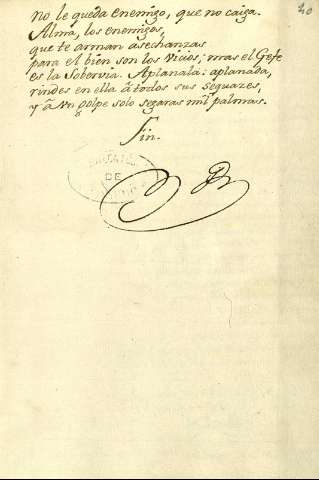 20
no le queda enemigo, que no caiga.
Alma, los enemigos,
que te arman asechanzas
para el bien son los Vicios; mas el Gefe
es la Sobervia. Aplanala: aplanada,
rindes en ella â todos sus sequazes,
y â Vn golpe solo segaras mil palmas.
Fin.
DE